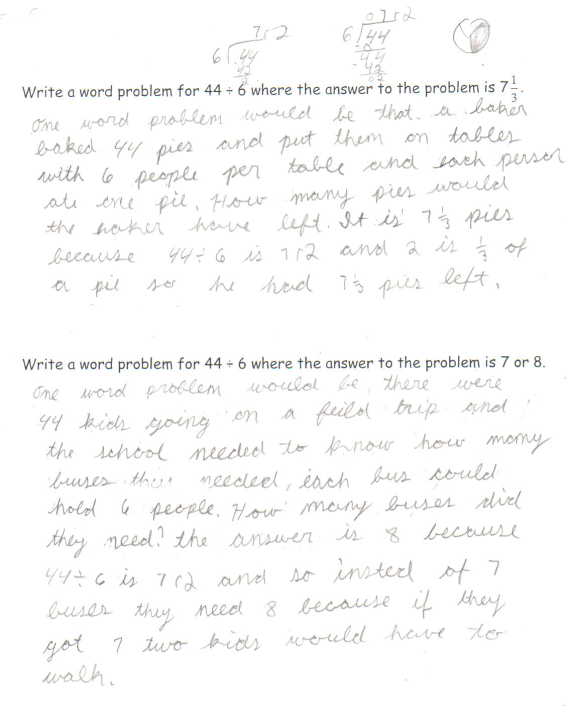 7r2
6 44
42
2
07r2
6 44
-0
44
-42
02
Write a word problem for 44 ÷ 6 where the answer to the problem is 7 1/3.
One word problem would be that a baker
baked 44 pies and put them on tables
with 6 people per table and each person
ate one pie. How many pies would
the baker have left. It is 7 1/3 pies
because 44÷6 is 7r2 and 2 is 1/3 of
a pie so he had 7 1/3 pies left.
Write a word problem for 44 ÷ 6 where the answer to the problem is 7 or 8.
One word problem would be, there were
44 kids going on a feild trip and
the school needed to know how many
buses they needed, each bus could
hold 6 people. How many buses did
they need? the answer is 8 because
44÷6 is 7r2 and so insted of 7
buses they need 8 because if they
got 7 two kids would have to
walk.